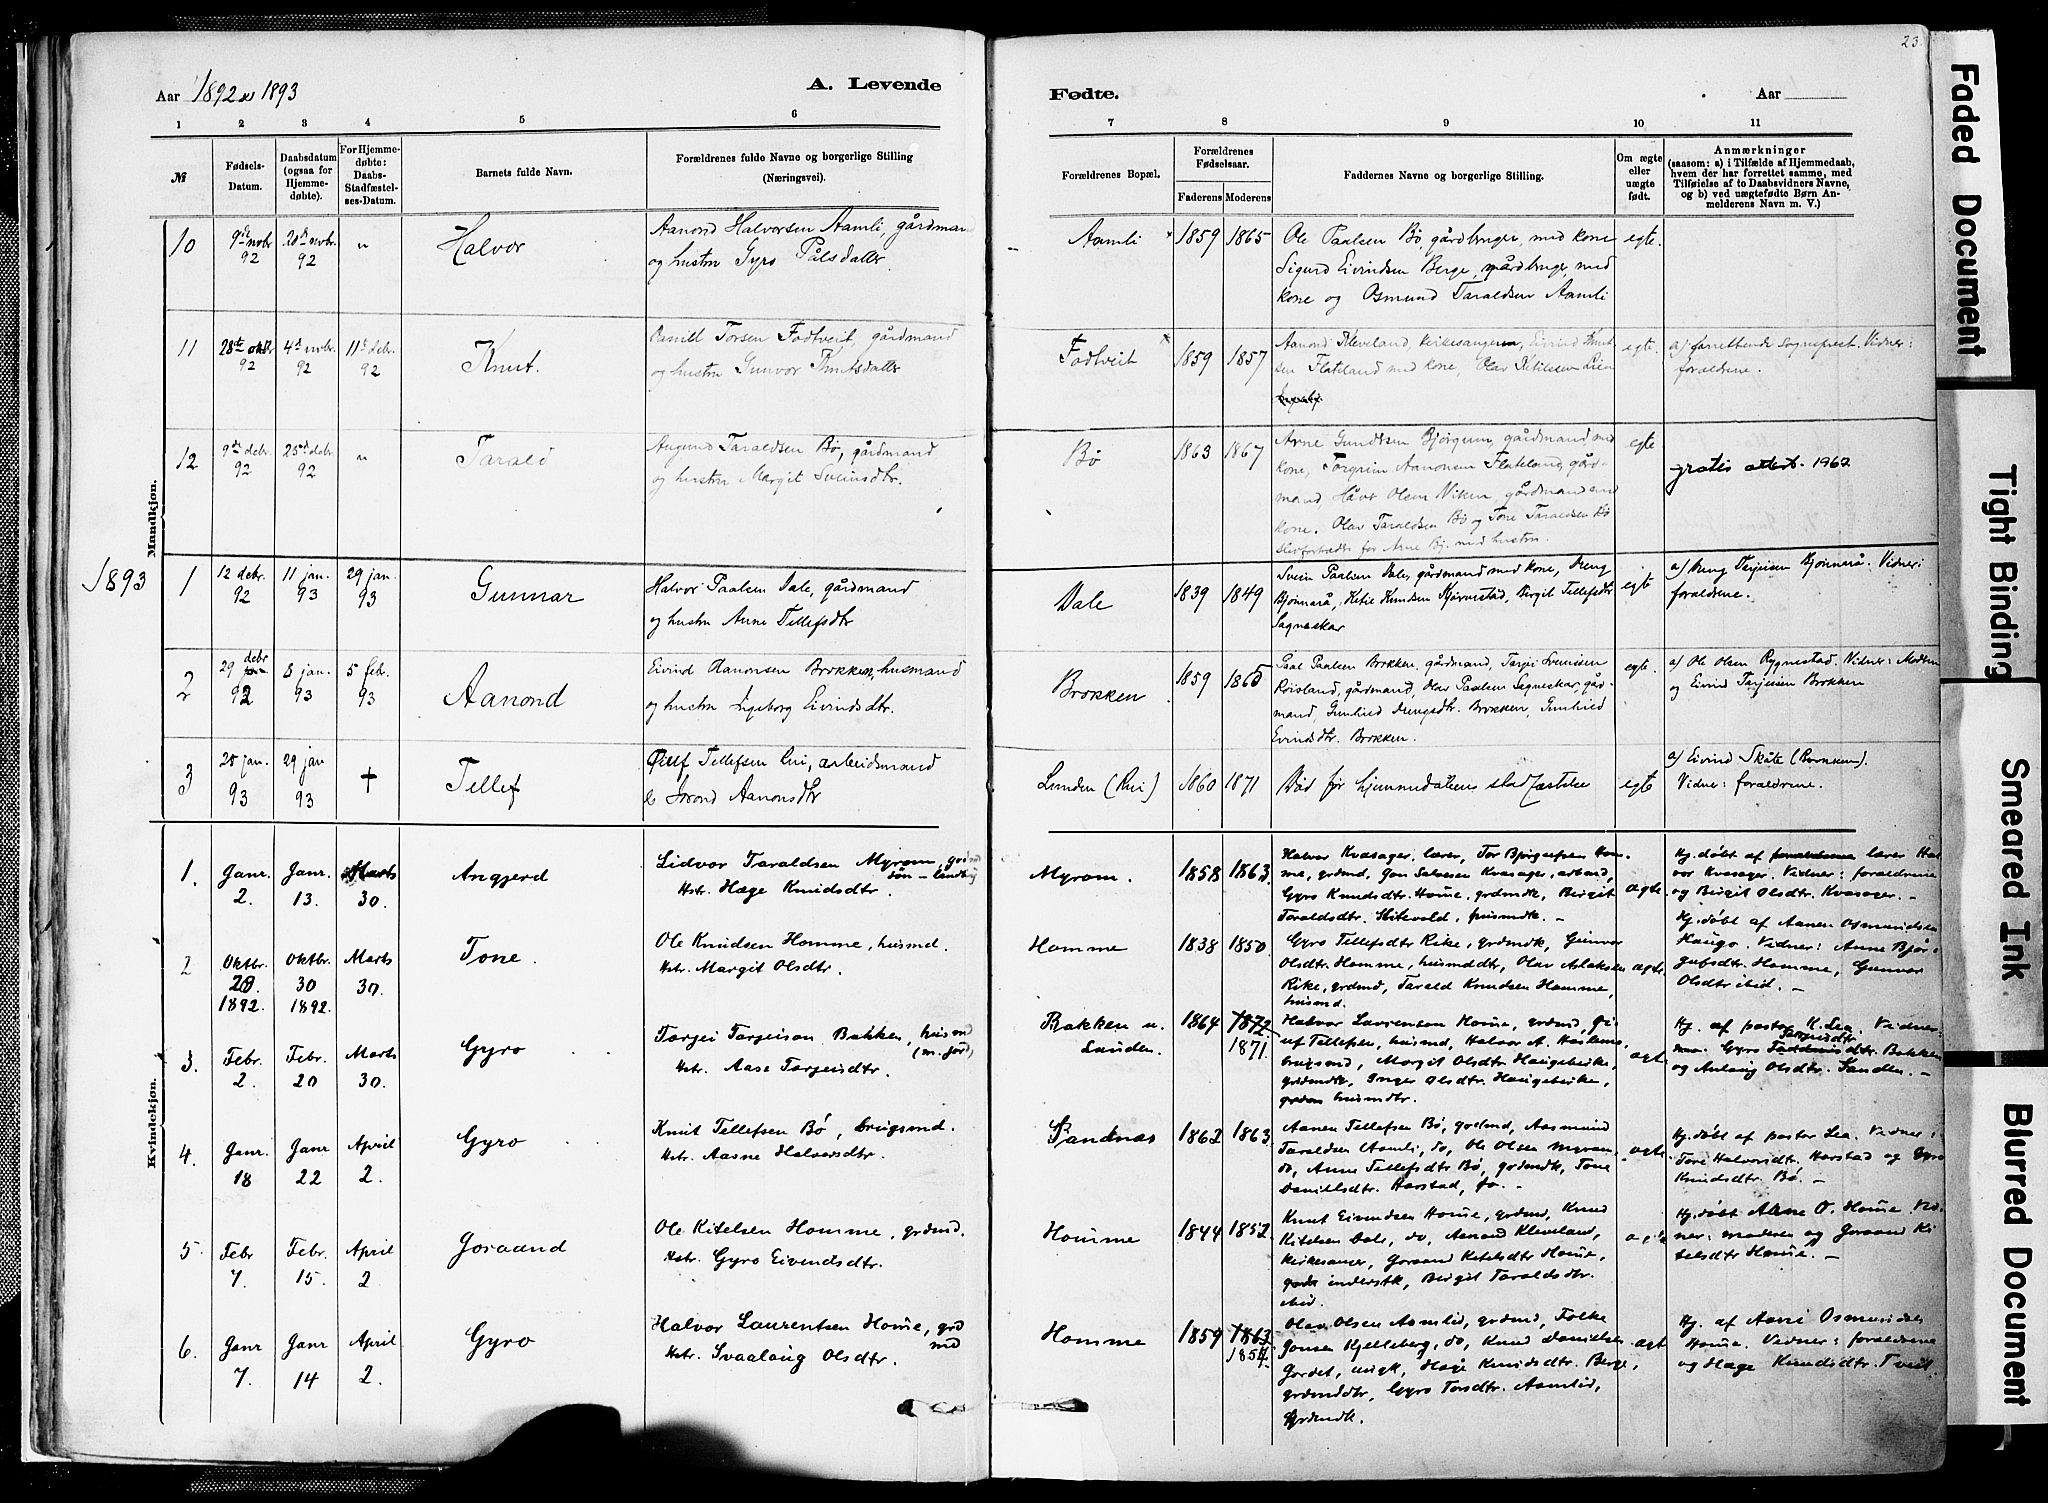 23
Aar 1892 & 1893
A. Levende
Fødte.
Aar
1 2 3 4 5 6 7 8 9 10 11
№
Fødsels-Datum.
Daabsdatum (ogsaa for Hjemme-døbte).
For Hjemme-døbte: Daabs-Stadfæstel-ses-Datum.
Barnets fulde Navn.
Forældrenes fulde Navne og borgerlige Stilling
(Næringsvei).
Forældrenes Bopæl.
Forældrenes Fødselsaar.
Faderens Moderens
Faddernes Navne og borgerlige Stilling.
Om ægte eller uægte født.
Anmærkninger
(saasom: a) i Tilfælde af Hjemmedaab,
hvem der har forrettet samme, med
Tilføielse af to Daabsvidners Navne,
og b) ved uægtefødte Børn An-
melderens Navn m. V.)
Mandkjøn.
10 9de novbr. 92 20de novbr. 92 " Halvor
Aanond Halvorsen Aamli, gårdmand
og hustru Gyro Pålsdatter.
Aamli 1859 1865
Ole Paalsen Bø, gårdbruger, med kone
Sigurd Eivindsen Berge, gårdbruger, med
kone og Osmund Taraldsen Aamli
egte.
11 28de 92 4de novbr. 92 11te debr. 92 Knut.
Daniel Torsen Fodtveit, gårdmand
og hustru Gunvor Knutsdatter
Fodtveit 1859 1857
Aanond Kleveland, kirkesanger, Eivind Knut-
sen Flateland med kone, Olav Ketilssen Lien
egte.
a) forrettende Sogneprest. Vidner:
forældrene.
12 9de debr. 92 25de debr. 92 " Tarald
Augund Taraldsen Bø, gårdmand
og hustru Margit Sveinsdtr.
Bø 1863 1867
Arne Gundersen Bjørgum, gårdmand med
kone, Torgrim Aanonsen Flateland, gård-
mand, Håvor Olsen Viken, gårdmand med
kone. Olav Taraldsen Bø og Tone Taraldsen Bø
for Arne Bj. med hustru
egte
gratis attest. 1962
1893
1 12 debr. 92 11 jan. 93 29 jan. 93 Gunnar
Halvor Paalsen Dale, gårdmand
og hustru Anne Tellefsdtr
Dale 1839 1849
Svein Paalsen Dale, gårdmand med kone, Dreng
Bjønnarå, Ketil Knudsen Bjørnestad, Birgit Tellefsdtr.
Sagneskar
egte
a) Dreng Terjeisen Bjønnarå. Vidner:
forældrene.
2 29 debr 92 8 jan. 93 5 feb. 93 Aanond
Eivind Aanonsen Brokken, husmand
og hustru Ingeborg Eivindsdtr.
Brokken 1859 1865
Paal Paalsen Brokken, gårdmand, Tarjei Sveinsen
Roisland, gårdmand, Olav Paalsen Sagneskar, gård-
mand, Gunhild Drengsdtr. Brokken, Gunhild
Eivindsdtr. Brokken.
egte.
a) Ole Olsen Rygnestad. Vidner: Modern
og Eivind Terjeisen Brokken
3 25 jan. 93 29 jan 93 † Tellef
Øiulf Tellefsen Rui, arbeidsmand
& Jorond Aanonsdtr
Lunden (Rui) 1860 1871
Død før hjemmedåbens stadfæstelse
egte
a) Eivind Skåte (Bornken).
Vidner: forældrene.
Kvindekjøn.
1. Janr. 2. Janr. 13. Marts 30. Angjerd
Lidvor Taraldsen Myrom, grdmd
søn - landbrug
Hstr. Hæge Knudsdtr.
Myrom. 1858 1863.
Halvor Kvasager, lærer, Tor Bjørgufsen Hom-
me, grdmd, Jon Salvesen Kvasager, arbmd,
Gyro Knudsdtr. Home, grdmdk, Birgit
Taraldsdtr. Slitevold, husmdk. -
ægte.
Hj. døbt af lærer Hal-
vor Kvasager. Vidner: forældrene
og Birgit Olsdtr. Kvasager. -
2 Oktbr. 20. 1892. Oktbr. 30 1892. Marts 30. Tone.
Ole Knudsen Homme, husmd.
Hstr. Margit Olsdtr.
Homme 1838 1850.
Gyro Tellefsdtr Rike, grdmdk, Gunvor
Olsdtr. Homme, husmddtr, Olav Aslaksen
Rike, grdmd, Tarald Knudsen Homme,
husmd.
ægte
Hj. døbt af Aanen Osmundsen
Haugo. Vidner: Anne Bjør-
gufsdtr. Homme, Gunvor
Olsdtr ibid. -
3. Febr. 2. Febr. 20 Marts 30. Gyro
Tarjei Tarjeison Bakken, husmd
(m. jord)
Hstr. Aase Tarjeisdtr.
Bakken u.
Lunden. 1864 1872 1871.
Halvor Laurensen Home, grdmd, Øi-
uf Tellefsen, husmd, Halvor A. Haslemo,
brugsmd, Margit Olsdtr Haugebirke,
grdmdk, Inger Olsdtr. Haugebirke,
husmdtr.
ægte
Hj. af pastor K. Lea. Vidner:
Gyro Tarjeisdtr. Bakken
og Anlaug Olsdtr. Sanden. -
4. Janr. 18 Janr 22 April 2. Gyro
Knut Tellefsen Bø, brugsmd.
Hstr. Aasne Halvorsdtr.
Sandnæs 1862 1863.
Aanen Tellefsen Bø, grdmd, Aasmund
Taraldsen Aamli, do, Ole Olsen Myrum,
do, Anne Tellefsdtr Bø, grdmdk, Tone
Danielsdtr. Harstad, do. -
ægte.
Hj. døbt af pastor Lea. Vidner:
Tore Halvorsdtr. Harstad og Gyro
Knudsdtr. Bø. -
5. Febr 7. Febr. 15. April 2 Joraand
Ole Kitelsen Homme, grdmd.
Hstr. Gyro Eivendsdtr.
Homme 1844 1852.
Knut Eivendsen Home, grdmd, Knud
Kitelsen Dale, do, Aanond Kleveland,
kirkesanger, Joraand Ketelsdtr Home,
inderstk, Birgit Taraldsdtr.
ibid.
ægte
Hj. døbt Anne O. Home. Vid-
ner: moderen og Joraand Ki-
telsdtr Home. -
6. Janr 7. Janr 14 April 2. Gyro
Halvor Laurentsen Home, grd
md
Hstr. Svaalaug Olsdtr.
Homme 1859 1863 1854.
Olav Olsen Aamlid, grdmd, Folke
Jonsen Kjelleberg, do, Knud Danielsen
Jordet, ungk, Hæge Knudsdtr. Berge,
grdmddtr, Gyro Torsdtr. Aamlid,
grdmdk.
ægt
Hj. af Aani Osmundsdtr
Home. Vidner: forældrene
og Hæge Knudsdtr. Tveit
Faded Document
Tight Binding
Smeared Ink
Blurred Document